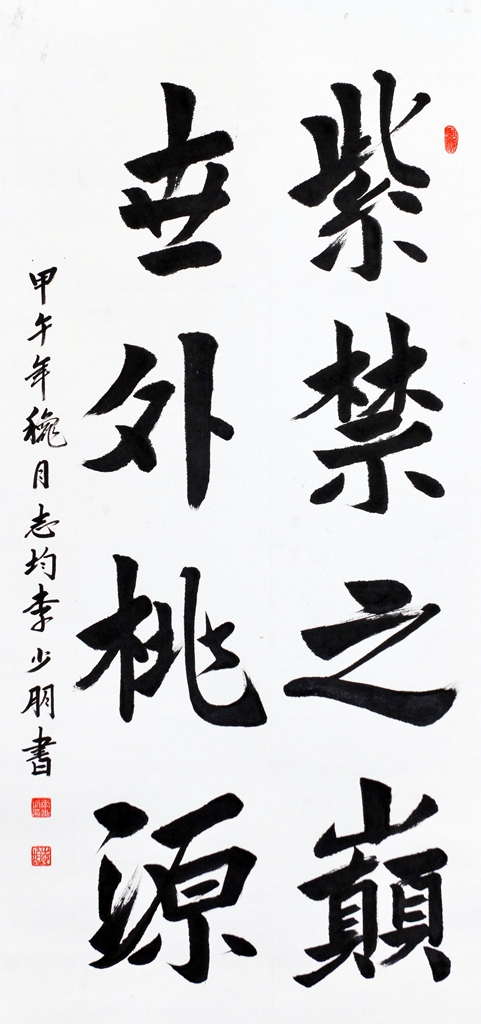 紫禁之巔
世外桃源
甲午年穐月志均李少朋書